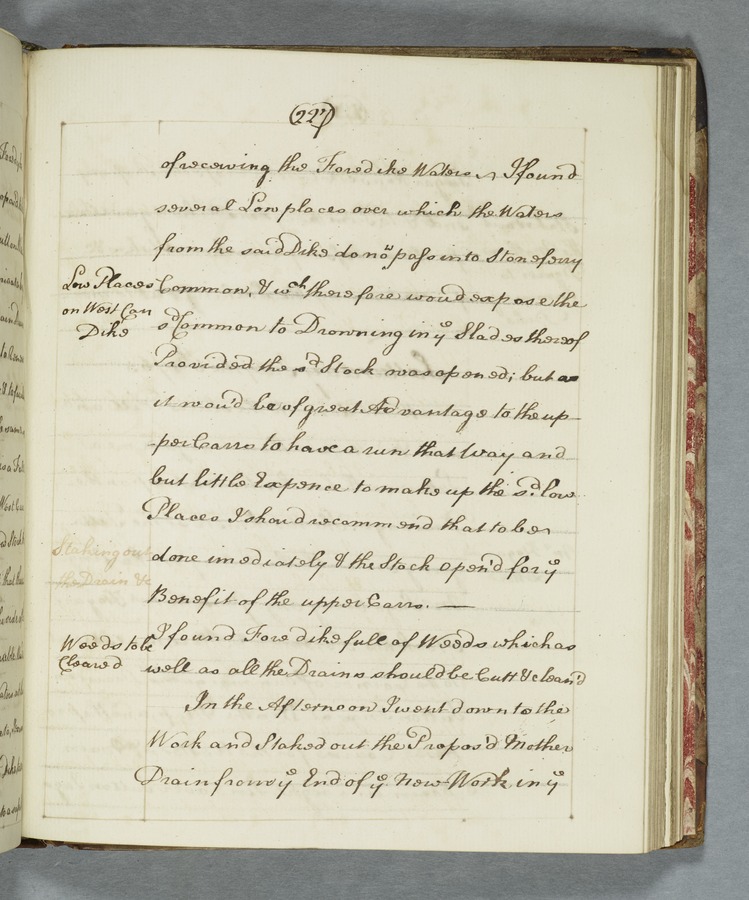 (227)
of receiving the Foredike Waters, I found
several Low places over which the Waters
from the said Dike do now pass into Stoneferry
Low Places
on West Carr
Dike
Common, & wch therefore woud expose the
sd Common to Drowning in ye Slades thereof
Provided the sd Stock was opened; but as
it wou'd be of great Advantage to the up
-per Carrs to have a run that Way and
but little Expence to make up the sd. low
Places I shoud recommend that to be
Staking out
the Drain &c
done imediately & the Stock open'd for ye
Benefit of the upper Carrs. —
Weeds to be
Cleared
I found Foredike full of Weeds which as
well as all the Drains should be Cutt & clean'd
In the Afternoon I went down to the
Work and Staked out the Propos'd Mother
Drain from ye End of ye New Work in ye